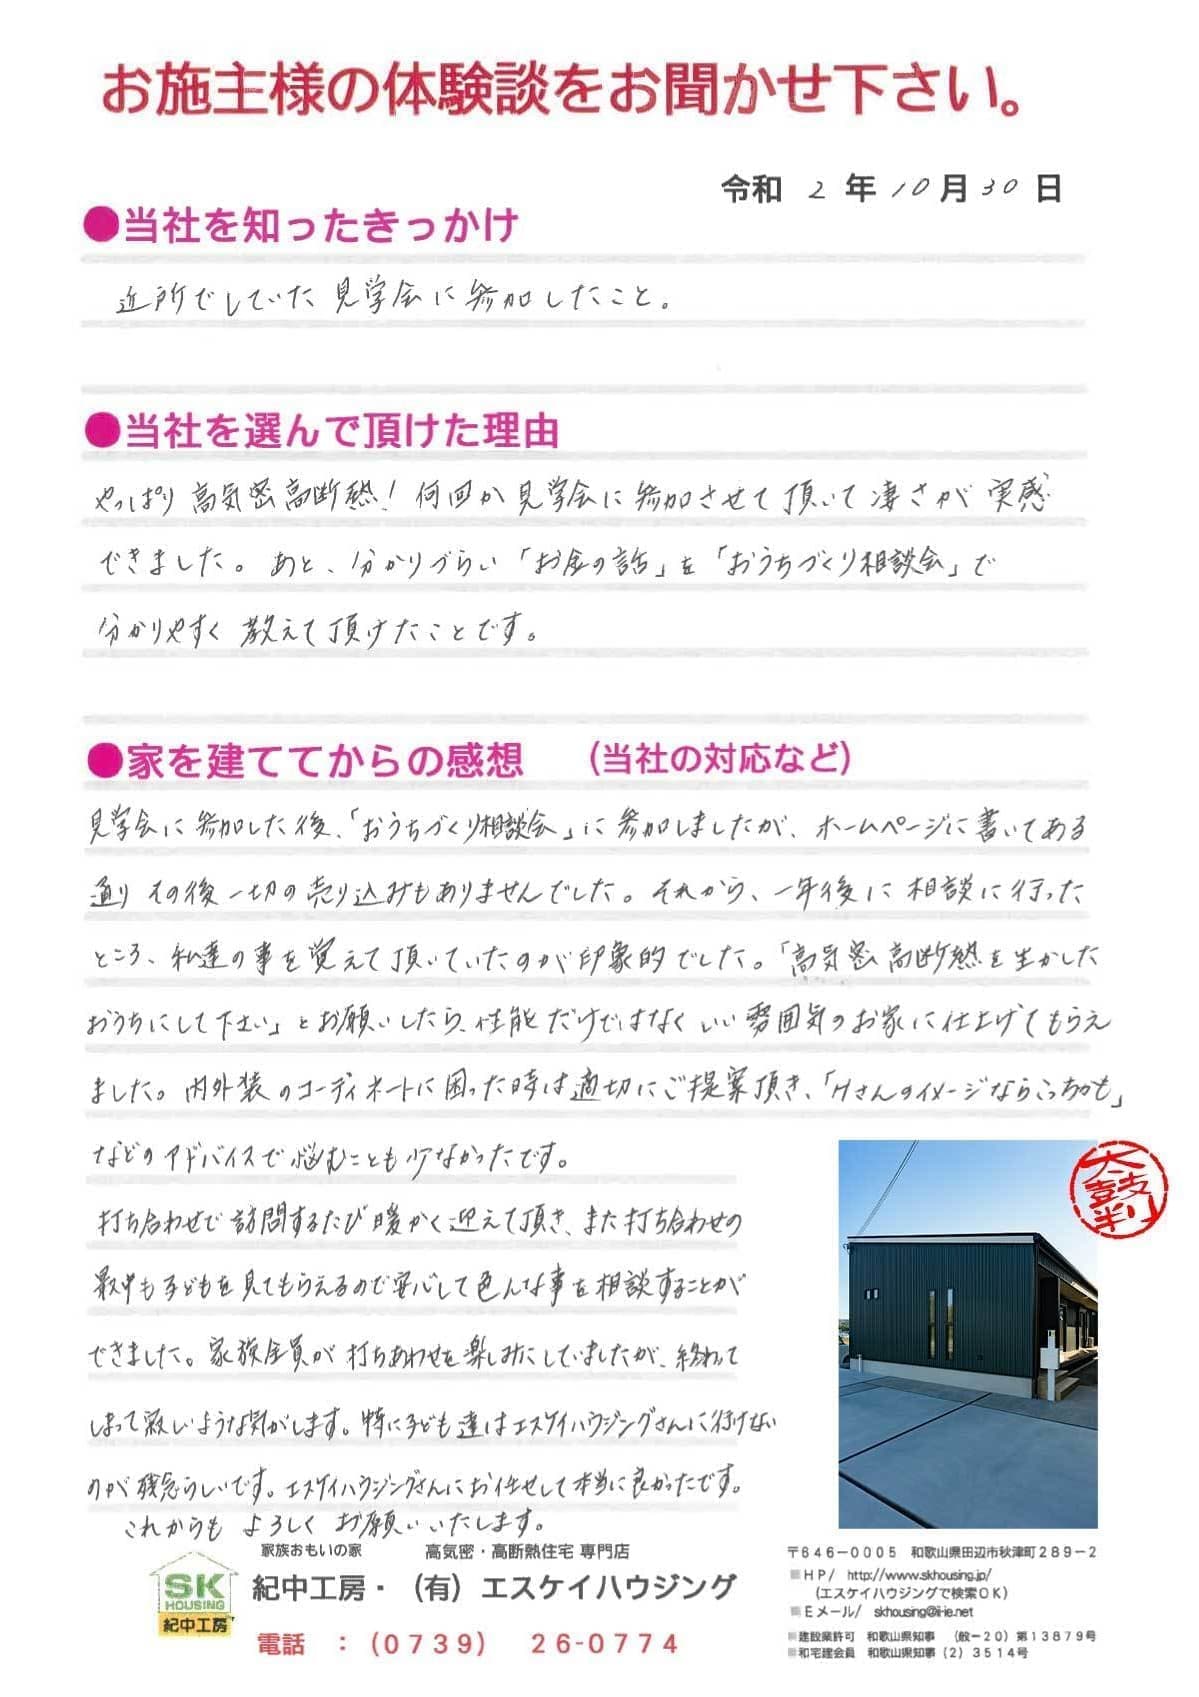 お施主様の体験談をお聞かせ下さい。
令和 2 年 10 月 30 日
●当社を知ったきっかけ
近所でしていた見学会に参加したこと。
●当社を選んで頂けた理由
やっぱり高気密高断熱!何回か見学会に参加させて頂いて凄さが実感
できました。あと、分かりづらい「お金の話」を「おうちづくり相談会」で
分かりやすく教えて頂けたことです。
●家を建ててからの感想 (当社の対応など)
見学会に参加した後、「おうちづくり相談会」に参加しましたが、ホームページに書いてある
通りその後一切の売り込みもありませんでした。それから、一年後に相談に行った
ところ、私達の事を覚えて頂いていたのが印象的でした。「高気密高断熱を生かした
おうちにして下さい」とお願いしたら、性能だけではなくいい雰囲気のお家に仕上げてもらえ
ました。内外装のコーディネートに困った時は適切にご提案頂き、「Hさんのイメージならこっちかも」
などのアドバイスで悩むことも少なかったです。
打ち合わせで訪問するたび暖かく迎えて頂き、また打ち合わせの
最中も子どもを見てもらえるので安心して色んな事を相談することが
できました。家族全員が打ちあわせを楽しみにしていましたが、終わって
しまって寂しいような気がします。特に子ども達はエスケイハウジングさんに行けない
のが残念らしいです。エスケイハウジングさんにお任せして本当に良かったです。
これからもよろしくお願いいたします。
太鼓判
家族おもいの家 高気密・高断熱住宅 専門店
SK
HOUSING
紀中工房
紀中工房・(有)エスケイハウジング
電話 :(0739) 26-0774
〒646-0005 和歌山県田辺市秋津町289-2
■HP/ http://www.skhousing.jp/
(エスケイハウジングで検索OK)
■Eメール/ skhousing@i-ie.net
■建設業許可 和歌山県知事 (般-20)第13879号
■和宅建会員 和歌山県知事(2)3514号